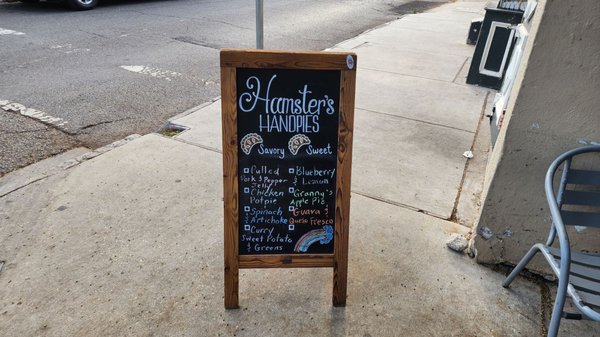 Hamster's
HANDPIES
Savory
Sweet
Pulled
Pork & Pepper
Jelly
Chicken
Potpie
Spinach
Artichoke
Curry
Sweet Potato
& Greens
Blueberry
& Lemon
Granny's
Apple Pie
Guava &
Queso Fresco